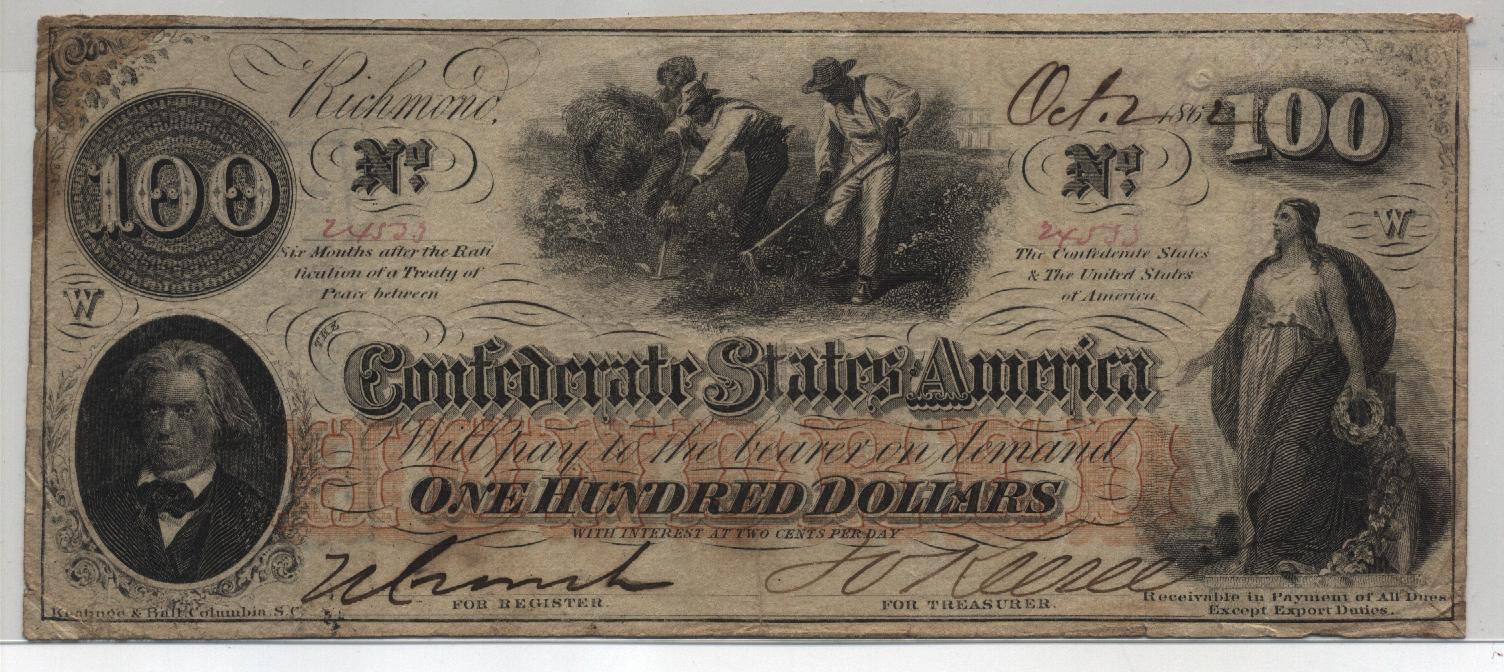 Richmond,
Oct. 2 1862
100
100
No.
No.
24533
24533
Six Months after the Rati
fication of a Treaty of
Peace between
The Confederate States
& The United States
of America.
W
W
THE
Confederate States America
Will pay to the bearer on demand
ONE HUNDRED DOLLARS
HUNDRED
WITH INTEREST AT TWO CENTS PER DAY
FOR REGISTER.
FOR TREASURER.
Keatinge & Ball, Columbia, S.C.
Receivable in Payment of All Dues
Except Export Duties.